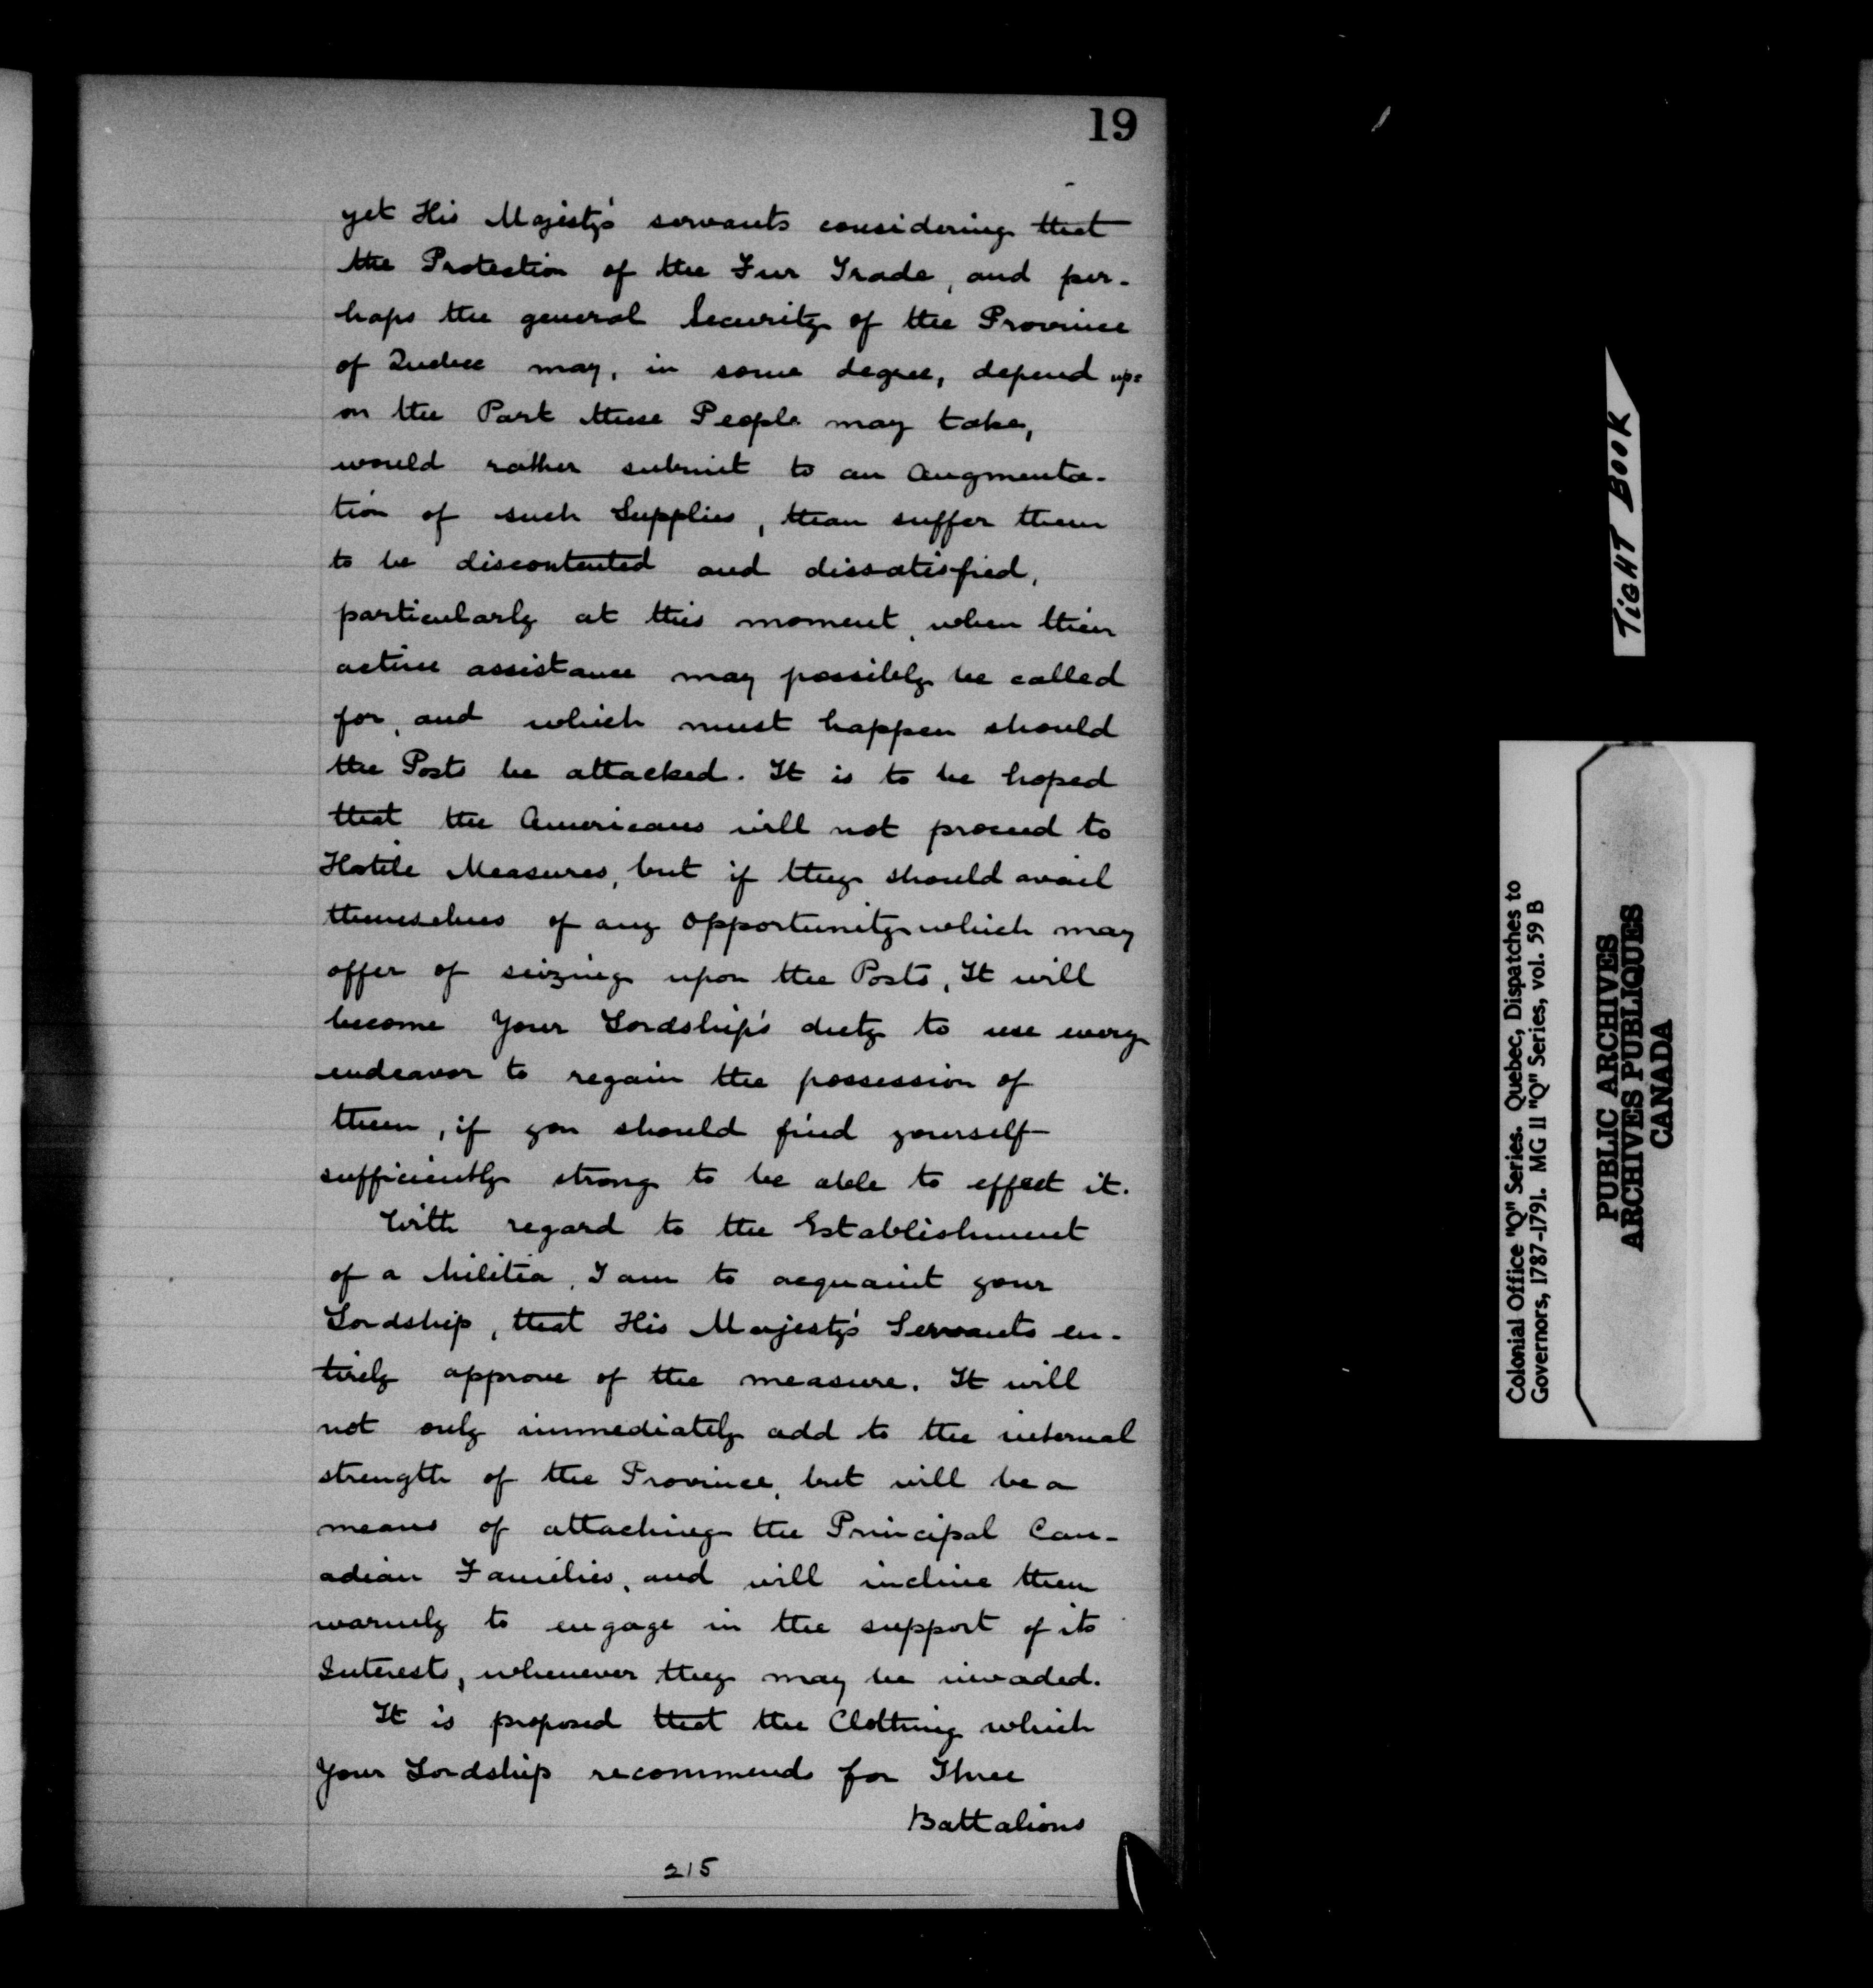 19
yet His Majesty's servants considering that
the Protection of the Fur Trade, and per-
haps the general Security of the Province
of Quebec may, in some degree, depend up=
on the Part these People may take,
would rather submit to an Augmenta-
tion of such Supplies, than suffer them
to be discontented and dissatisfied,
particularly at this moment, when their
active assistance may possibly be called
for, and which must happen should
the Posts be attacked. It is to be hoped
that the Americans will not proceed to
Hostile Measures, but if they should avail
themselves of any opportunity which may
offer of seizing upon the Posts, It will
become Your Lordship's duty to use every
endeavor to regain the possession of
them, if you should find yourself
sufficiently strong to be able to effect it.
With regard to the Establishment
of a Militia, I am to acquaint your
Lordship, that His Majesty's Servants en-
tirely approve of the measure. It will
not only immediately add to the internal
strength of the Province, but will be a
means of attaching the Principal Can-
adian Families, and will incline them
warmly to engage in the support of its
Interests, whenever they may be invaded.
It is proposed that the Clothing which
Your Lordship recommends for Three
Battalions
215
TIGHT BOOK
Colonial Office "Q" Series. Quebec, Dispatches to
Governors, 1787-1791. MG 11 "Q" Series, vol. 59 B
PUBLIC ARCHIVES
ARCHIVES PUBLIQUES
CANADA